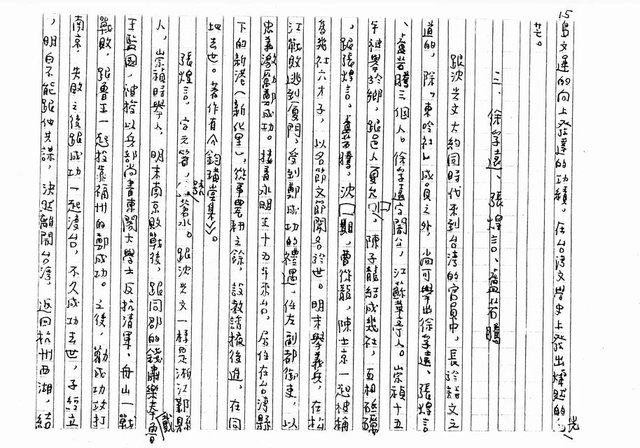 15
島文運的向上發達的功績，在台灣文學史上發出燦爛的光
芒。
三、徐孚遠、張煌言、盧若騰
跟沈光文大約同時代來到台灣的官員中，長於詩文之
道的，除「東吟社」成員之外，尚可舉出徐孚遠、張煌言
、盧若騰三個人。徐孚遠字闇公，江蘇華亭人。崇禎十五
年神舉於鄉，跟邑人夏允彝、陳子龍結成幾社，互相砥礪
，跟張煌言、盧若騰、沈佺期、曹從龍、陳士京一起被稱
為幾社六才子，以名節文章聞名於世。明末舉義兵，在松
江戰敗逃到廈門，受到鄭成功的禮遇，任左副都御史，以
忠義激勵鄭成功。接著永明王十五年來台，居住在台灣縣
下的新港（新化里），從事墾耕之餘，設教誘掖後進。在同
地去世。著作有《釣璜堂集》。
張煌言，字元箸，號蒼水。跟沈光文一樣是浙江鄞縣
人，崇禎時舉人，明末南京敗戰後，跟同鄉的錢肅樂奉魯
王監國，被授以兵部尚書東閣大學士，反抗清軍，舟山一戰
戰敗，跟魯王一起投靠福州的鄭成功。之後，勸成功攻打
南京，失敗之後跟成功一起渡台，不久成功去世，子經立
，明白不能跟他共謀，決然離開台灣，返回杭州西湖，結